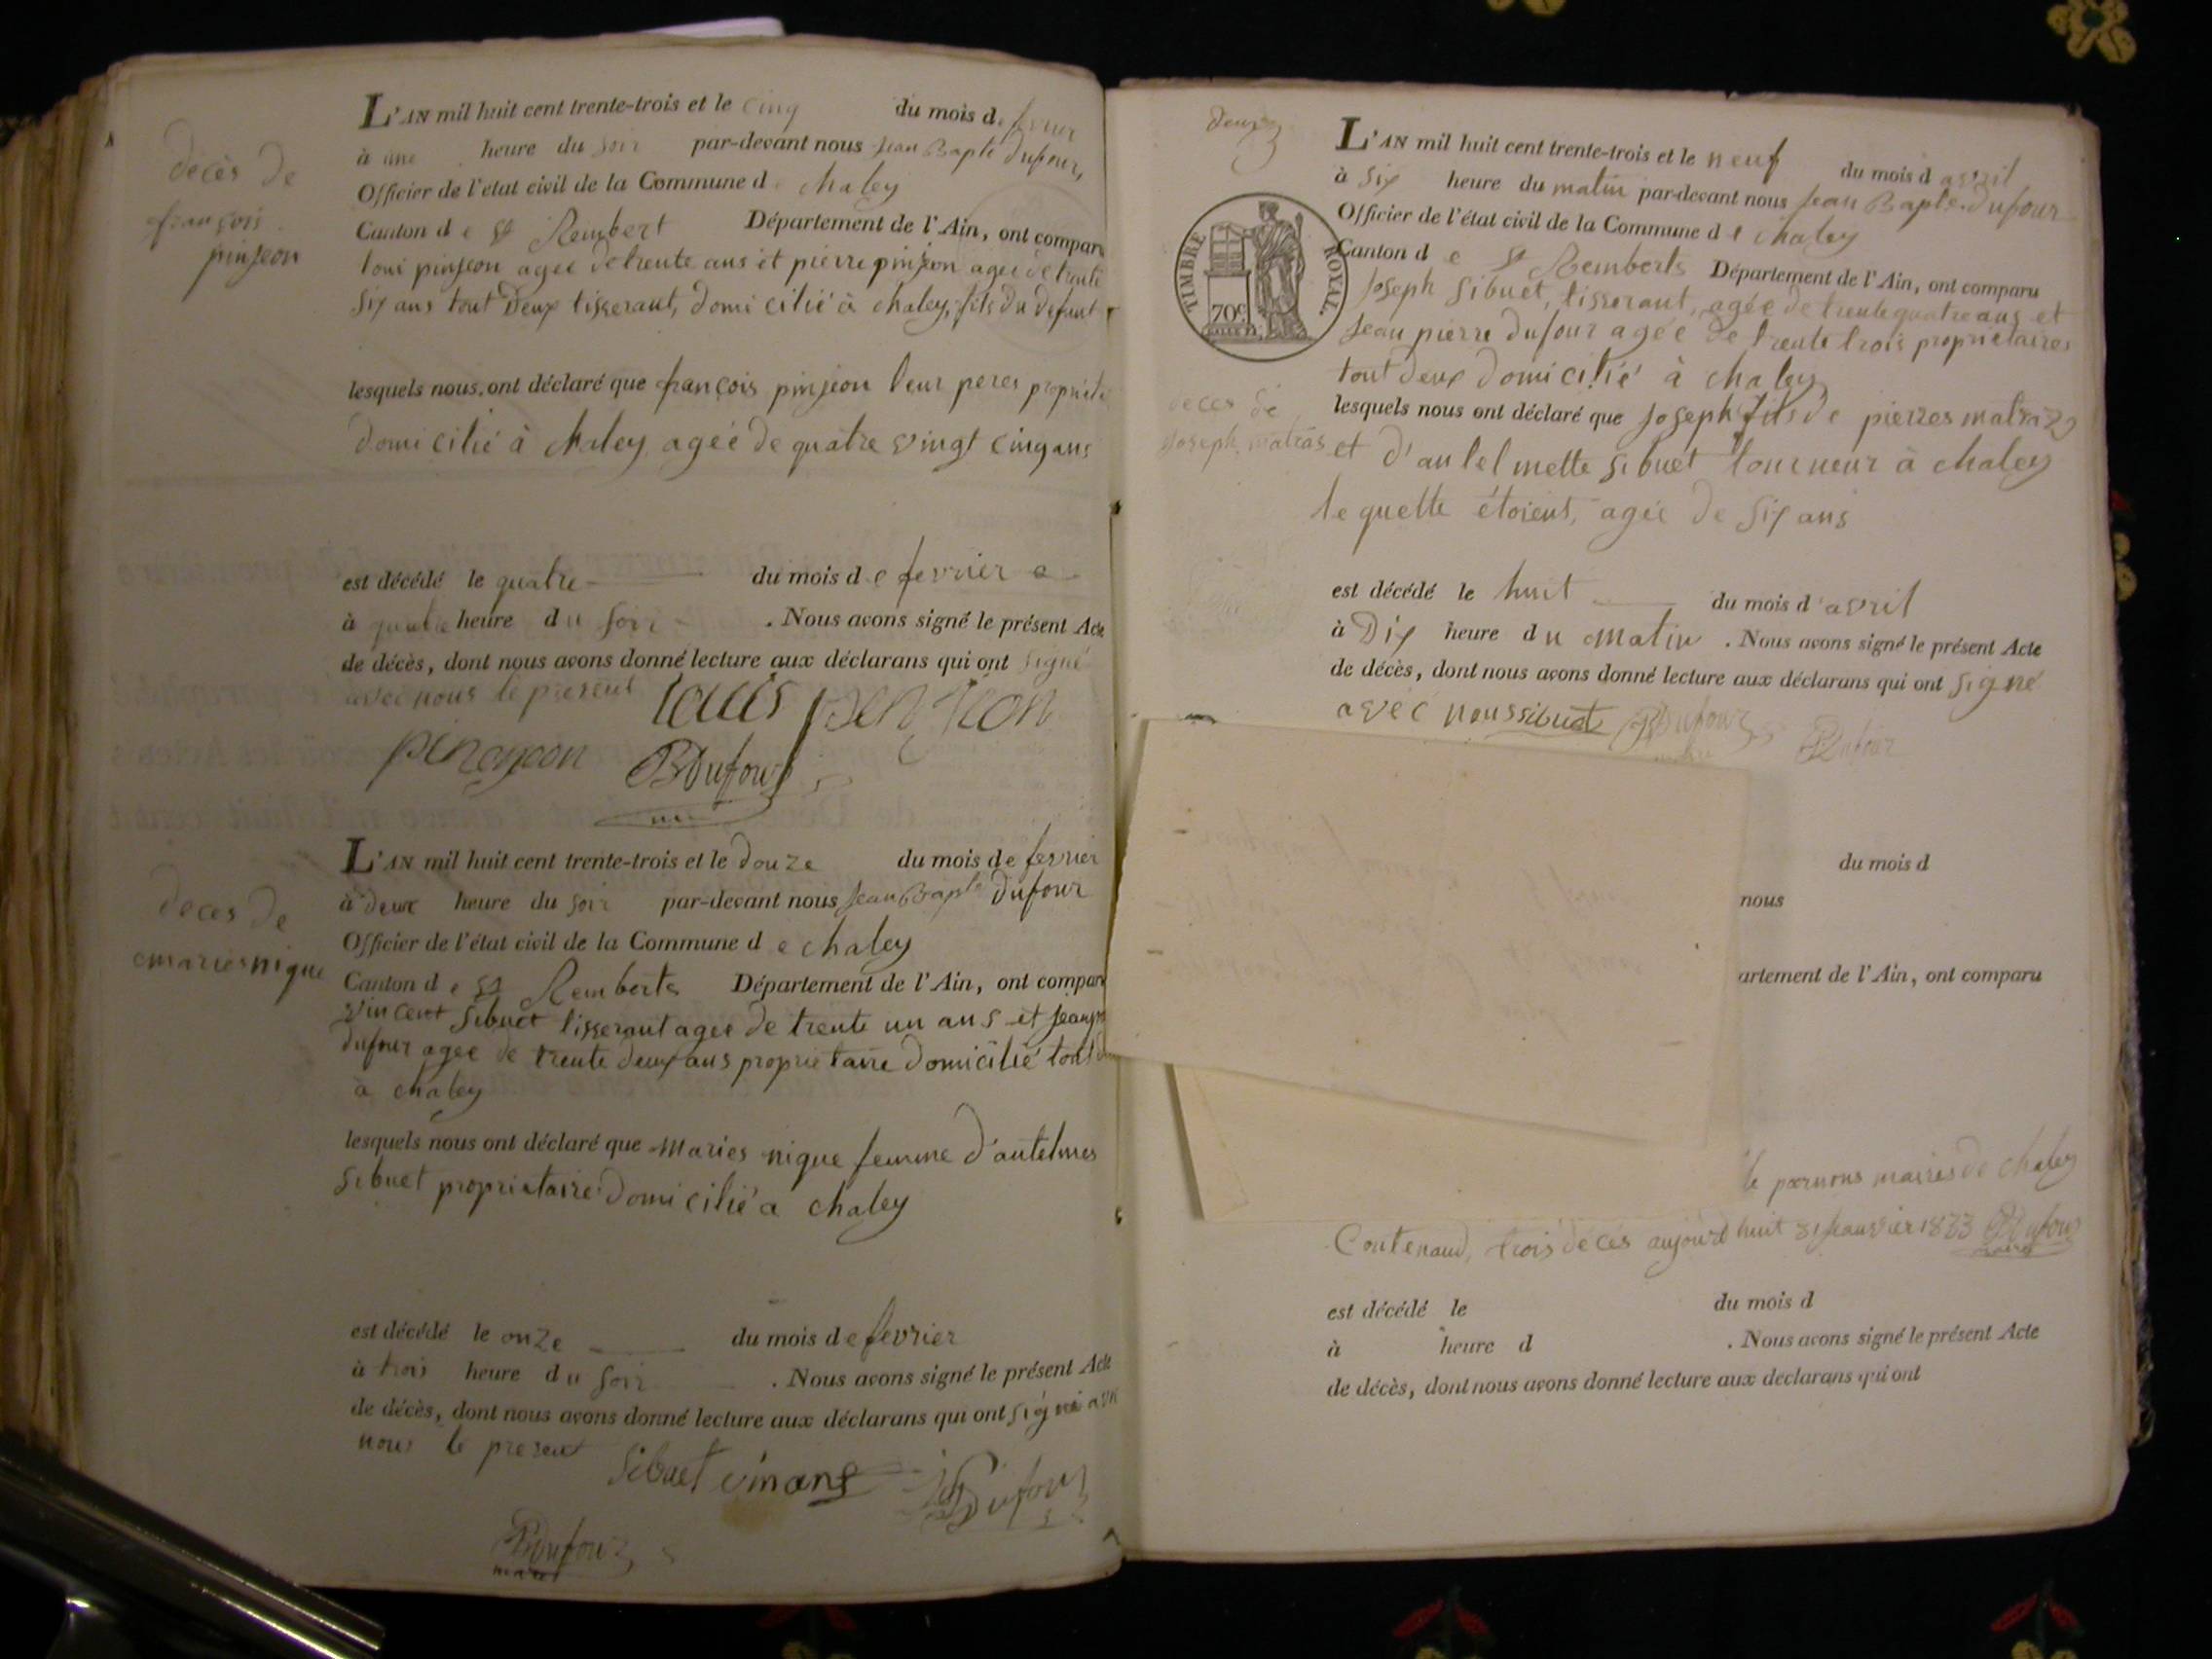 décès de
françois
pinjeon
L'AN mil huit cent trente-trois et le cinq du mois de fevrier
à une heure du soir par-devant nous jean Bapte Dufour,
Officier de l'état civil de la Commune de chaley
Canton de St Rembert Département de l'Ain, ont comparu
loui pinjeon ageé de trente ans et pierre pinjeon ageé de trente
six ans tout Deux tisserant, domicilié à chaley, fils du defunt
lesquels nous ont déclaré que françois pinjeon leur peres propriet
domicilié à chaley ageé de quatre vingt cinq ans
est décédé le quatre du mois de fevrier
à quatre heure du soir . Nous avons signé le présent Acte
de décès, dont nous avons donné lecture aux déclarans qui ont signé
avec nous le present louis
Dufour
deces de
maries nique
L'AN mil huit cent trente-trois et le douze du mois de fevrier
à deux heure du soir par-devant nous jean Bapte Dufour
Officier de l'état civil de la Commune de chaley
Canton de St Remberts Département de l'Ain, ont compar
vincent sibuet tisserant ageé de trente un ans et jean
dufour ageé de trente deux ans proprietaire domicilié tout
à chaley
lesquels nous ont déclaré que maries nique femme d'antelmes
sibuet proprietaire domicilié a chaley
est décédé le onze du mois de fevrier
à trois heure du soir . Nous avons signé le présent Acte
de décès, dont nous avons donné lecture aux déclarans qui ont signé
nous le present sibuet vinans Dufour
Dufour
maire
deux
L'AN mil huit cent trente-trois et le neuf du mois d avril
à six heure du matin par-devant nous jean Bapte Dufour
Officier de l'état civil de la Commune de chaley
Canton de St Remberts Département de l'Ain, ont comparu
TIMBRE ROYAL.
70c
joseph sibuet, tisserant, ageé de trente quatre ans et
jean pierre dufour ageé de trente trois proprietaires
tout deux domicilié à chaley
deces de
joseph matras
lesquels nous ont déclaré que joseph fils de pierres matraz
et d'antelmette sibuet tourneur à chaley
lequelle étoient, ageé de six ans
est décédé le huit du mois d'avril
à Dix heure du matin . Nous avons signé le présent Acte
de décès, dont nous avons donné lecture aux déclarans qui ont signé
avec nous sibuet Dufour Dufour
du mois d
nous
artement de l'Ain, ont comparu
le par nous maires de chaley
Contenand, trois déces aujourd huit 31 jeanvier 1833 Dufour
est décédé le du mois d
à heure d . Nous avons signé le présent Acte
de décès, dont nous avons donné lecture aux declarans qui ont